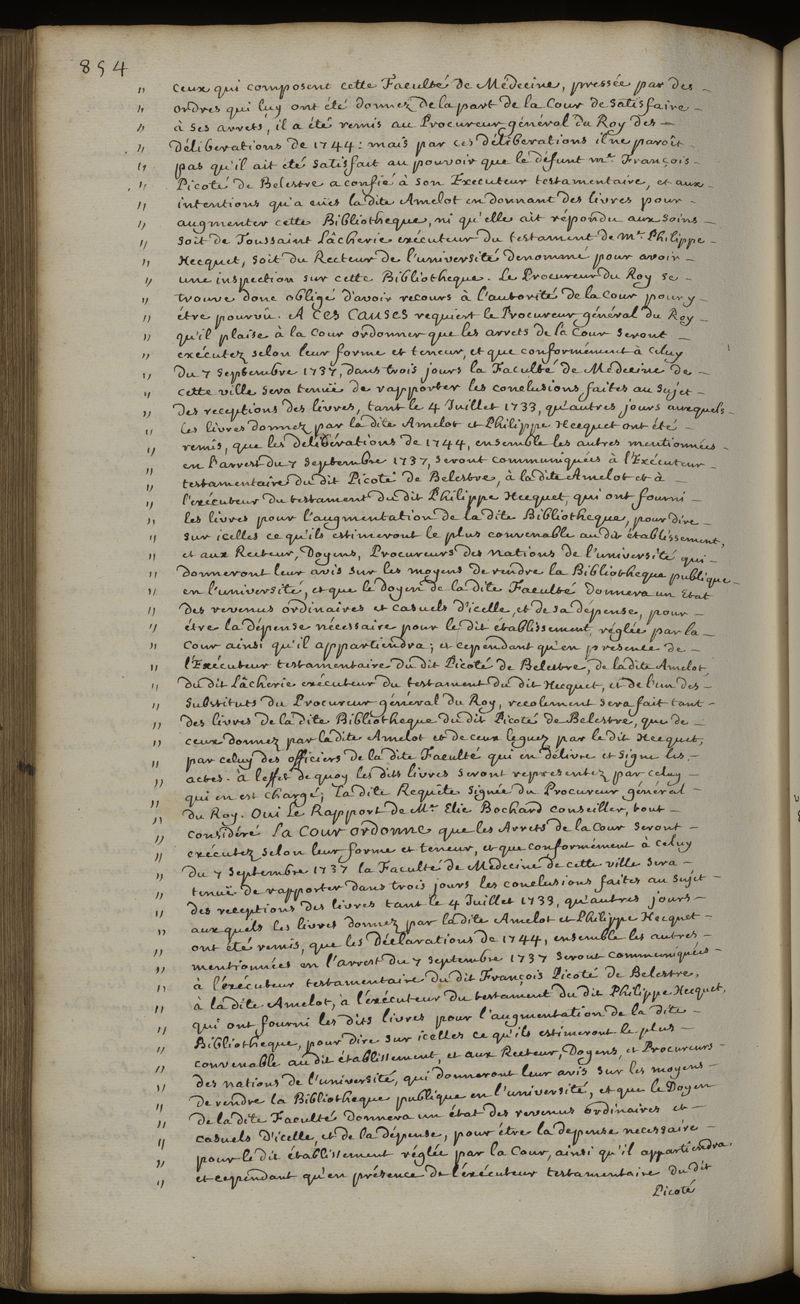 854
" ceux qui composent cette Faculté de Médecine, pressée par des –
" ordres qui luy ont été donnez de la part de la Cour de satisfaire –
" à ses arrets, il a été remis au Procureur général du Roy des –
" déliberations de 1744 : mais par ces déliberations il ne paroît –
" pas qu'il ait été satisfait au pouvoir que le défunt mre. François –
" Picoté de Belestre a confié à son Executeur testamentaire, et aux –
" intentions qu'a eües ladite Amelot en donnant des livres pour –
" augmenter cette Bibliotheque, ni qu'elle ait répondu aux soins –
" soit de Toussaint Lâcherie exécuteur du testament de Mr. Philippe –
" Hecquet, soit du Recteur de l'université dénommé pour avoir –
" une inspection sur cette Bibliotheque. Le Procureur du Roy se –
" trouve donc obligé d'avoir recours à l'autorité de la Cour pour y –
" être pourvû. A CES CAUSES requiert le Procureur général du Roy –
" qu'il plaise à la Cour ordonner que les arrets de la Cour seront –
" exécutez selon leur forme et teneur, et que conformément à celuy
" du 7 Septembre 1737, dans trois jours la Faculté de Médecine de –
" cette ville sera tenuë de rapporter les conclusions faites au sujet –
" des receptions des livres, tant le 4 Juillet 1733, qu'autres jours auxquels –
" les livres donnez par la dite Amelot et Philippe Hecquet ont été –
" remis, que les déliberations de 1744, ensemble les autres mentionnées –
" en l'arrest du 7 Septembre 1737, seront communiquées à l'Exécuteur –
" testamentaire du dit Picoté de Belestre, à la dite Amelot et à –
" l'exécuteur du testament du dit Philippe Hecquet, qui ont fourni –
" les livres pour l'augmentation de la dite Bibliotheque, pour dire –
" sur icelles ce qu'ils estimeront le plus convenable au dit établissement,
" et aux Recteur, Doyens, Procureurs des nations de l'université qui –
" donneront leur avis sur les moyens de rendre la Bibliotheque publique –
" en l'université, et que le doyen de la dite Faculté donnera un Etat
" des revenus ordinaires et casuels d'icelle, et de sa dépense, pour –
" être la dépense nécessaire pour le dit établissement, réglée par la –
" Cour ainsi qu'il appartiendra ; et cependant qu'en presence de –
" l'Exécuteur testamentaire du dit Picoté de Belestre, de la dite Amelot,
" du dit Lâcherie exécuteur du testament du dit Hecquet, et de l'un des –
" Substituts du Procureur général du Roy, recolement sera fait tant –
" des livres de la dite Bibliotheque du dit Picoté de Belestre, que de –
" ceux donnez par la dite Amelot et de ceux leguez par le dit Hecquet,
" par celuy des officiers de la dite Faculté qui en délivre et signe les –
" actes. a l'effet de quoy les dits livres seront representez par celuy –
" qui en est chargé ; La dite Requête signée du Procureur général –
" du Roy. Oui Le Rapport de Me. Elie Bochard conseiller, tout –
" considéré LA COUR ORDONNE que les Arrets de la Cour seront –
" exécutez selon leur forme et teneur, et que conformément à celuy
" du 7 Septembre 1737 la Faculté de Médecine de cette ville sera –
" tenuë de rapporter dans trois jours les conclusions faites au sujet –
" des receptions des livres tant le 4 Juillet 1733, qu'autres jours –
" auxquels les livres donnez par la dite Amelot et Philippe Hecquet –
" ont été remis, que les déclarations de 1744, ensemble les autres –
" mentionnées en l'arrest du 7 Septembre 1737 seront communiquées –
" à l'exécuteur testamentaire du dit François Picoté de Belestre,
" à la dite Amelot, à l'exécuteur du testament du dit Philippe Hecquet,
" qui ont fourni les dits livres pour l'augmentation de la dite –
" Bibliotheque, pour dire sur icelles ce qu'ils estimeront le plus –
" convenable au dit établissement, et aux Recteur, Doyens, et Procureurs –
" des nations de l'université, qui donneront leur avis sur les moyens –
" de rendre la Bibliotheque publique en l'université, et que le Doyen
" de la dite Faculté donnera un état des revenus ordinaires et –
" casuels d'icelle, et de la dépense, pour être la depense necessaire –
" pour le dit établissement réglée par la Cour, ainsi qu'il appartiendra,
" et cependant qu'en présence de l'exécuteur testamentaire du dit
Picoté